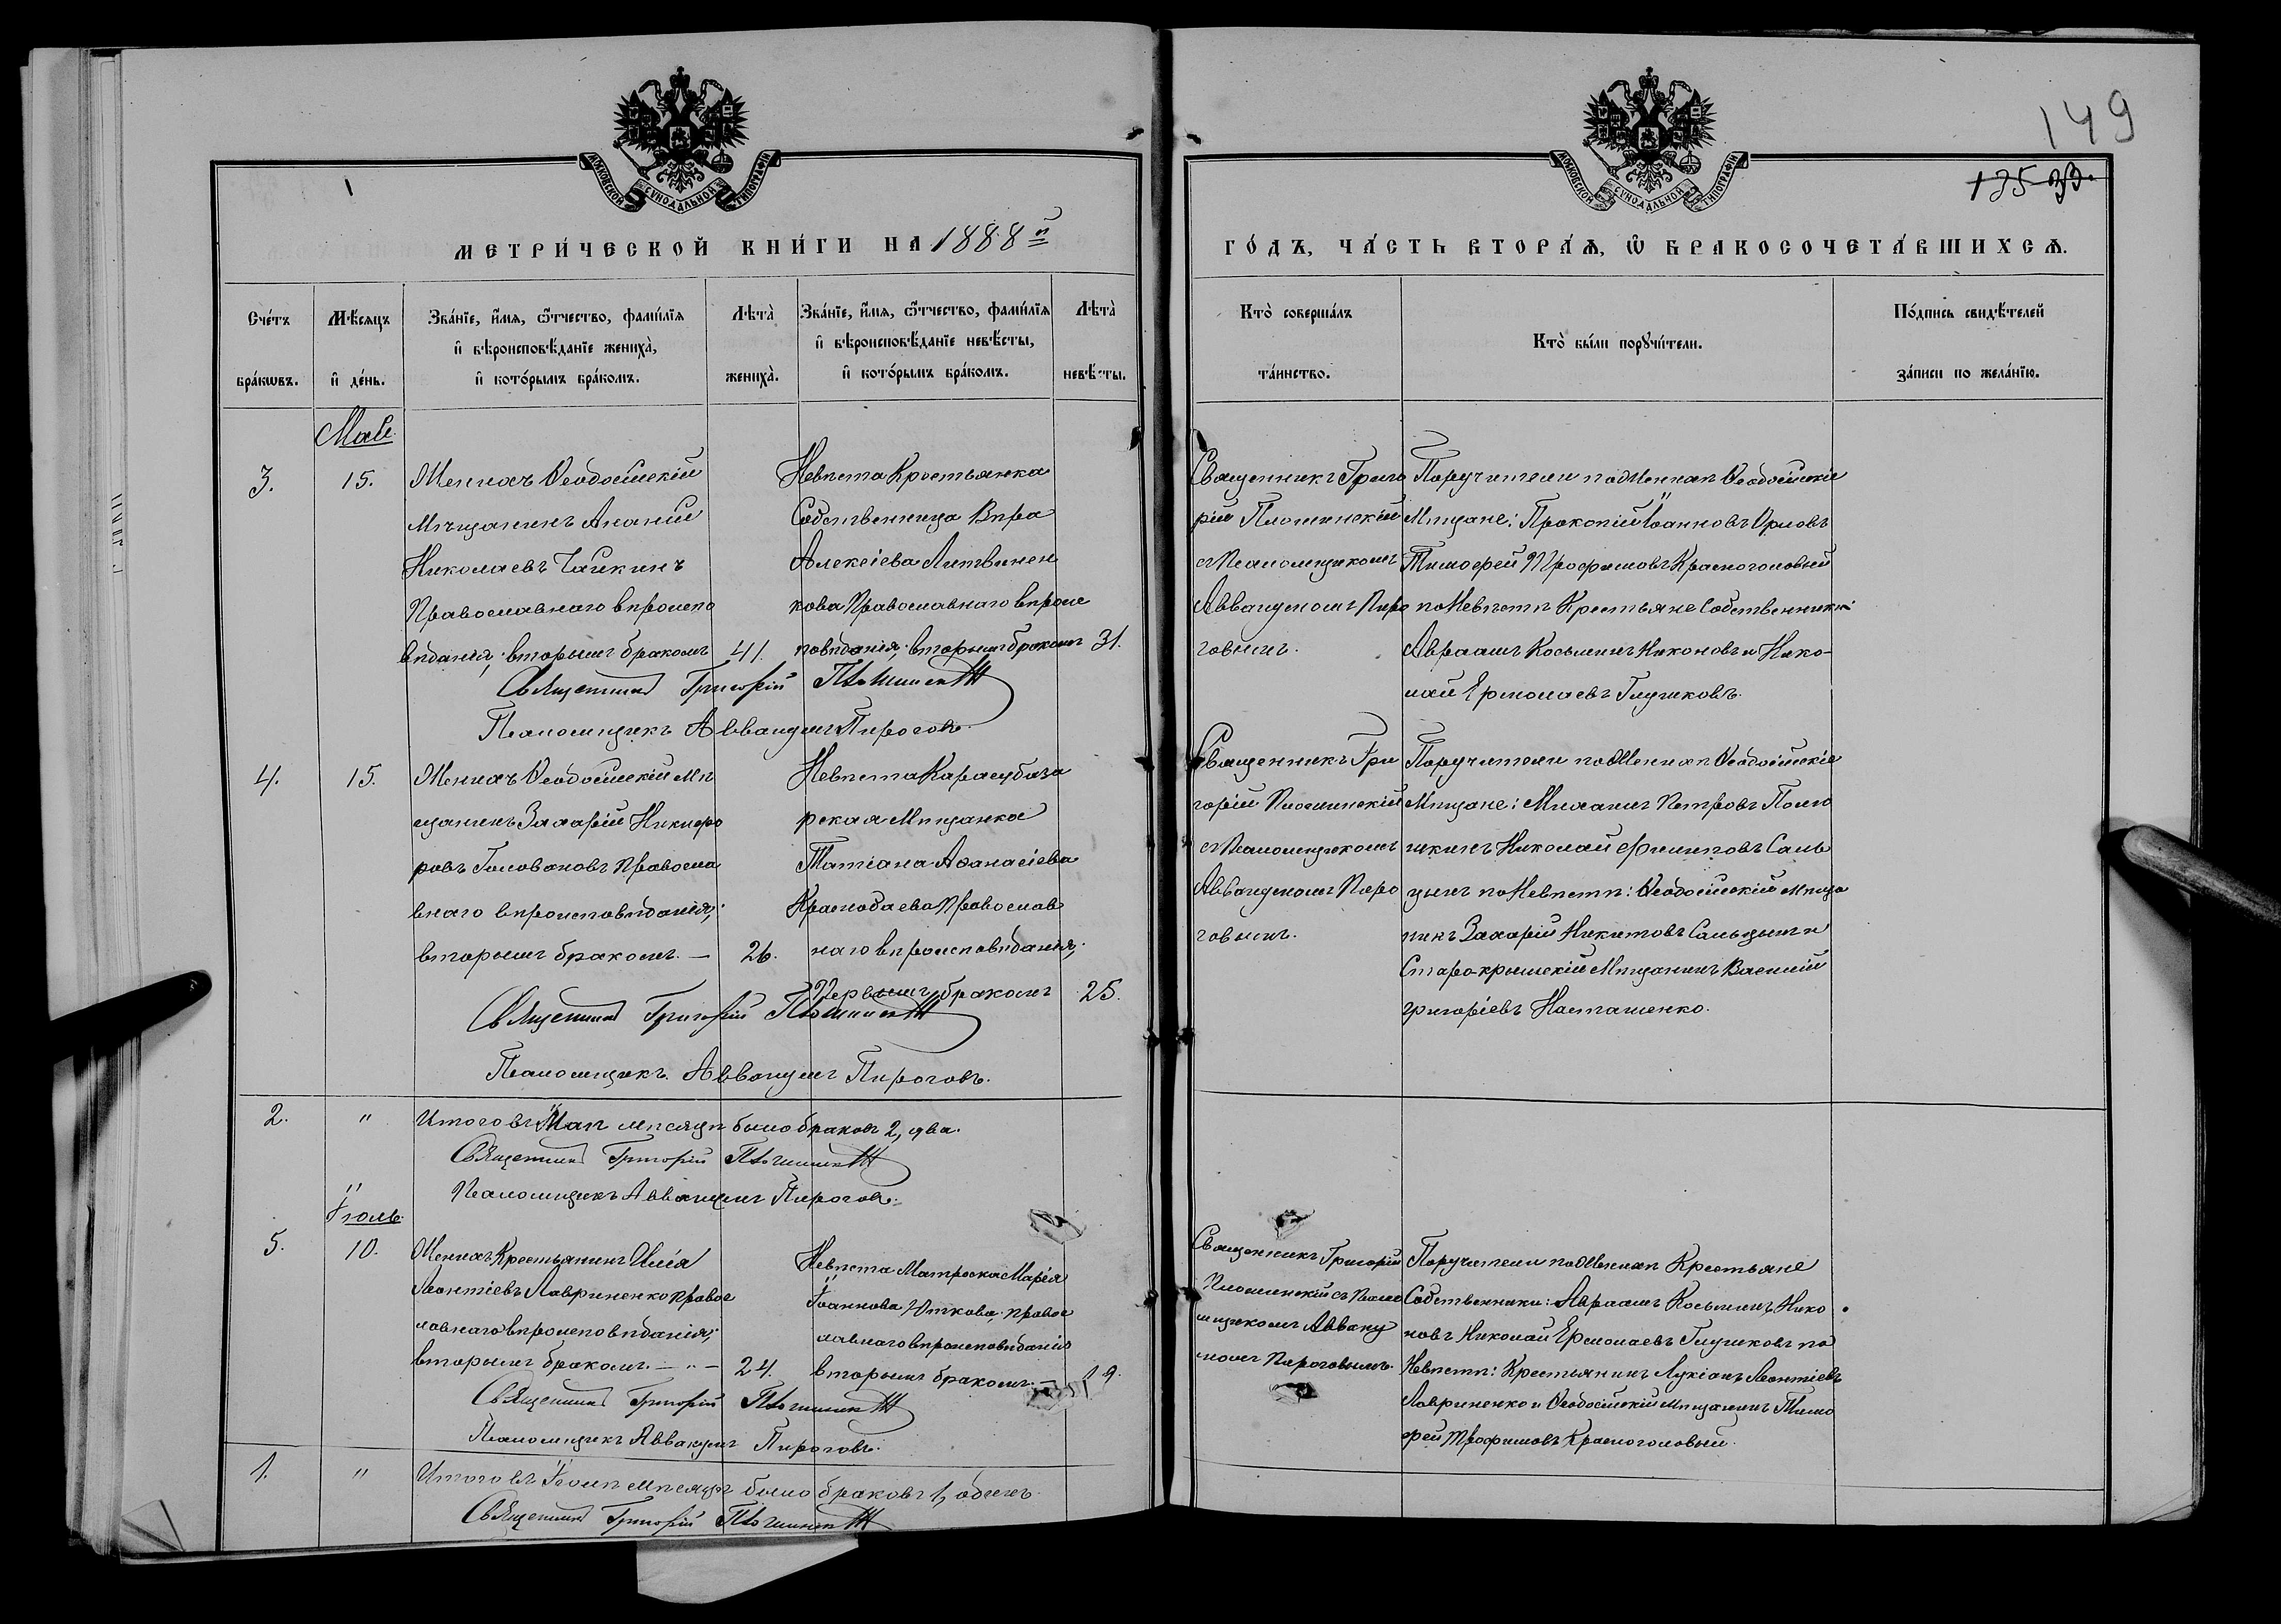 149
135 33.
МОСКОВСКОЙ СѴНОДАЛЬНОЙ ТИПОГРАФІИ
МОСКОВСКОЙ СѴНОДАЛЬНОЙ ТИПОГРАФІИ
МЕТРИ́ЧЕСКОЙ КНИ́ГИ НА 1888 й
ГО́ДЪ, ЧА́СТЬ ВТОРА́Ѧ, Ѡ҆ БРАКОСОЧЕТА́ВШИХСѦ.
Сче́тъ
бра́кѡвъ.
Мѣ́сяцъ
и҆ де́нь.
Зва́нїе, и҆́мя, ѻ҆́тчество, фами́лїя
и҆ вѣроисповѣ́данїе жениха̀,
и҆ кото́рымъ бра́комъ.
Лѣта̀
жениха̀.
Зва́нїе, и҆́мя, ѻ҆́тчество, фами́лїя
и҆ вѣроисповѣ́данїе невѣ́сты,
и҆ кото́рымъ бра́комъ.
Лѣта̀
невѣ́сты.
Кто̀ соверша́лъ
та́инство.
Кто̀ бы́ли порꙋчи́тели.
По́дпись свидѣ́телей
за́писи по жела́нїю.
Май.
3.
15.
Женихъ Ѳеодосійскій
Мѣщанинъ Ананій
Николаевъ Чайкинъ
Православнаго вѣроиспо
вѣданія, вторымъ бракомъ
41.
Невѣста Крестьянка
Собственница Вѣра
Алексіева Литвинен
кова Православнаго вѣроис
повѣданія, вторымъ бракомъ
31.
Священникъ Григорій Плошинскій
Псаломщикъ Аввакумъ Пироговъ.
Священникъ Григо
рій Плошинскій
съ Псаломщикомъ
Аввакумомъ Пиро
говымъ.
Поручители по Женихѣ Ѳеодосійскіе
Мѣщане: Прокопій Іоанновъ Орловъ
Тимофей Трофимовъ Красноголовый
по Невѣстѣ Крестьяне Собственники
Авраамъ Косьминъ Никоновъ и Нико-
лай Ермолаевъ Глушковъ.
4.
15.
Женихъ Ѳеодосійскій Мѣ
щанинъ Захарій Никифо
ровъ Головановъ Правосла
внаго вѣроисповѣданія,
вторымъ бракомъ. —
26.
Невѣста Карасубаза
рская Мѣщанка
Татіана Аѳанасіева
Краснобаева Православ
наго вѣроисповѣданія,
Первымъ бракомъ
25.
Священникъ Григорій Плошинскій
Псаломщикъ Аввакумъ Пироговъ.
Священникъ Гри
горій Плошинскій
съ Псаломщикомъ
Аввакумомъ Пиро
говымъ.
Поручители по Женихѣ Ѳеодосійскіе
Мѣщане: Михаилъ Петровъ Поло
шкинъ Николай Филиповъ Саль
цынъ по Невѣстѣ: Ѳеодосійскій Мѣща
нинъ Захарій Никитовъ Сальцынъ и
Старокрымскій Мѣщанинъ Василій
Григоріевъ Насташенко.
2.
"
Итого въ Маѣ мѣсяцѣ было браковъ 2, два.
Священникъ Григорій Плошинскій
Псаломщикъ Аввакумъ Пироговъ.
Іюль.
5.
10.
Женихъ Крестьянинъ Илія
Леонтіевъ Лавриненко Правос
лавнаго вѣроисповѣданія,
вторымъ бракомъ. — " —
24.
Невѣста Матроска Марія
Іоаннова Уткова, правос
лавнаго вѣроисповѣданія
вторымъ бракомъ. —
19.
Священникъ Григорій Плошинскій
Псаломщикъ Аввакумъ Пироговъ.
Священникъ Григорій
Плошинскій съ Псало
мщикомъ Авваку
момъ Пироговымъ.
Поручители по Женихѣ Крестьяне
Собственники: Авраамъ Косьминъ Нико
новъ Николай Ермолаевъ Глушковъ по
Невѣстѣ: Крестьянинъ Лукіанъ Леонтіевъ
Лавриненко и Ѳеодосійскій Мѣщанинъ Тимо
фей Трофимовъ Красноголовый.
1.
"
Итого въ Іюлѣ мѣсяцѣ было браковъ 1, одинъ.
Священникъ Григорій Плошинскій